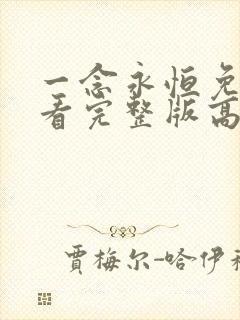 一念永恒免
看完整版高
贾梅尔-哈伊利